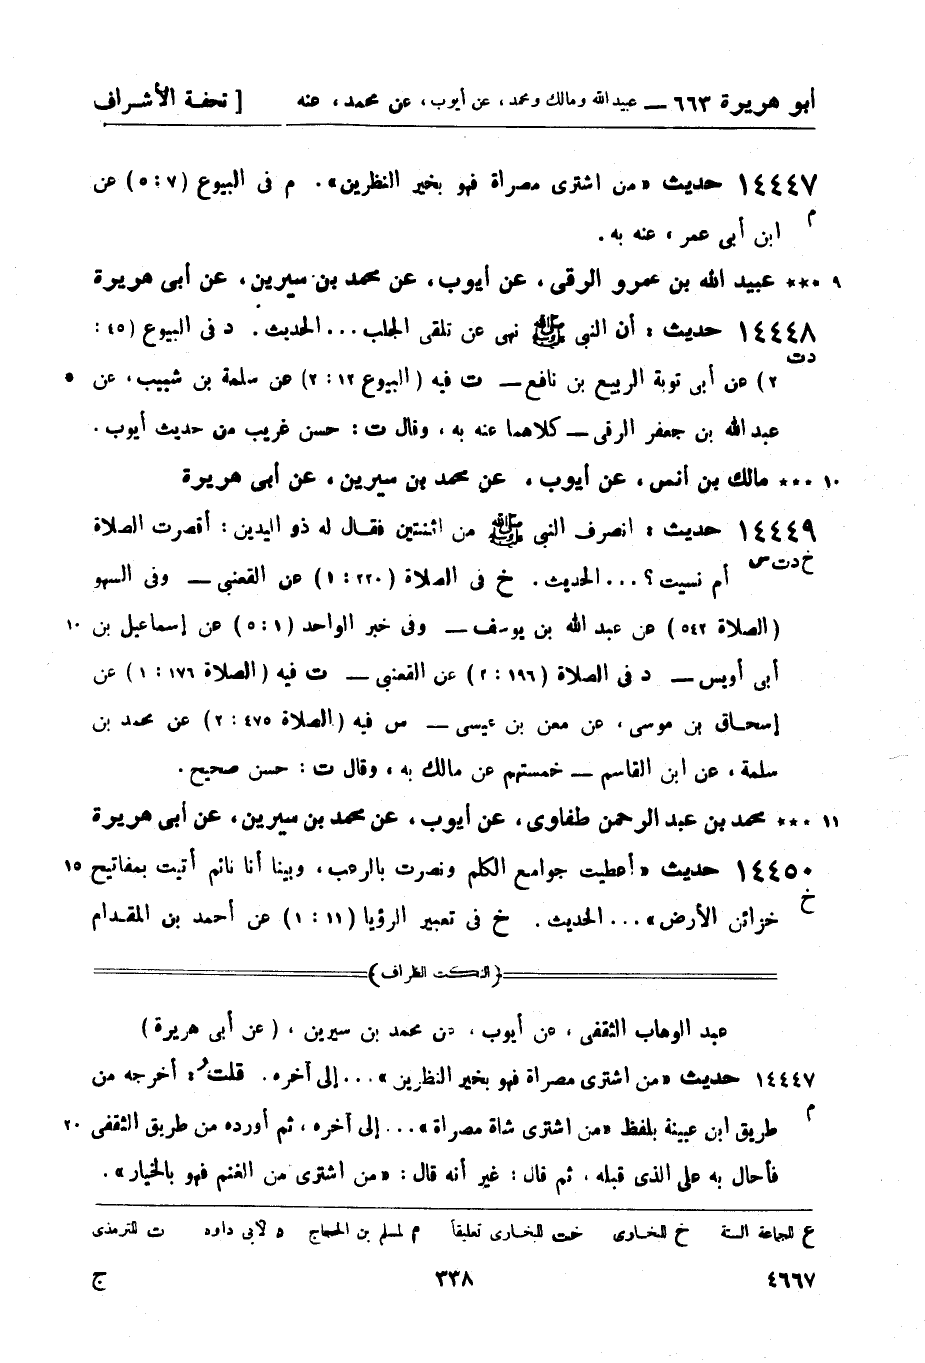 أبو هريرة ٦٦٣ — عبيد الله ومالك ومحمد، عن أيوب، عن محمد، عنه [ تحفة الأشراف
١٤٤٤٧ حديث «من اشترى مصراة فهو بخير النظرين». م فى البيوع (٧ : ٥) عن
م ابن أبى عمر، عنه به.
٩ *** عبيد الله بن عمرو الرقى، عن أيوب، عن محمد بن سيرين، عن أبى هريرة
١٤٤٤٨ حديث : أن النبى ﷺ نهى عن تلقى الجلب... الحديث. د فى البيوع (٤٥ :
دت
٢) عن أبى توبة الربيع بن نافع — ت فيه (البيوع ١٢ : ٢) عن سلمة بن شبيب، عن ٥
عبد الله بن جعفر الرقى — كلاهما عنه به، وقال ت : حسن غريب من حديث أيوب.
١٠ *** مالك بن أنس، عن أيوب، عن محمد بن سيرين، عن أبى هريرة
١٤٤٤٩ حديث : انصرف النبى ﷺ من اثنتين فقال له ذو اليدين : أقصرت الصلاة
خ دت س أم نسيت؟... الحديث. خ فى الصلاة (٢٢٠ : ١) عن القعنبى — وفى السهو
(الصلاة ٥٤٢) عن عبد الله بن يوسف — وفى خبر الواحد (١ : ٥) عن إسماعيل بن ١٠
أبى أويس — د فى الصلاة (١٩٦ : ٢) عن القعنبى — ت فيه (الصلاة ١٧٦ : ١) عن
إسحاق بن موسى، عن معن بن عيسى — س فيه (الصلاة ٤٧٥ : ٢) عن محمد بن
سلمة، عن ابن القاسم — خمستهم عن مالك به، وقال ت : حسن صحيح.
١١ *** محمد بن عبد الرحمن طفاوى، عن أيوب، عن محمد بن سيرين، عن أبى هريرة
١٤٤٥٠ حديث «أعطيت جوامع الكلم ونصرت بالرعب، وبينا أنا نائم أتيت بمفاتيح ١٥
خ خزائن الأرض»... الحديث. خ فى تعبير الرؤيا (١١ : ١) عن أحمد بن المقدام
(النكت الظراف)
عبد الوهاب الثقفى، عن أيوب، عن محمد بن سيرين، (عن أبى هريرة)
١٤٤٤٧ حديث «من اشترى مصراة فهو بخير النظرين»... إلى آخره. قلت : أخرجه من
م
طريق ابن عيينة بلفظ «من اشترى شاة مصراة»... إلى آخره، ثم أورده من طريق الثقفى ٢٠
فأحال به على الذى قبله، ثم قال : غير أنه قال : «من اشترى من الغنم فهو بالخيار».
ع للجماعة الستة خ للبخارى خت للبخارى تعليقاً م لمسلم بن الحجاج د لأبى داود ت للترمذى
٤٦٦٧ ٣٣٨ ج